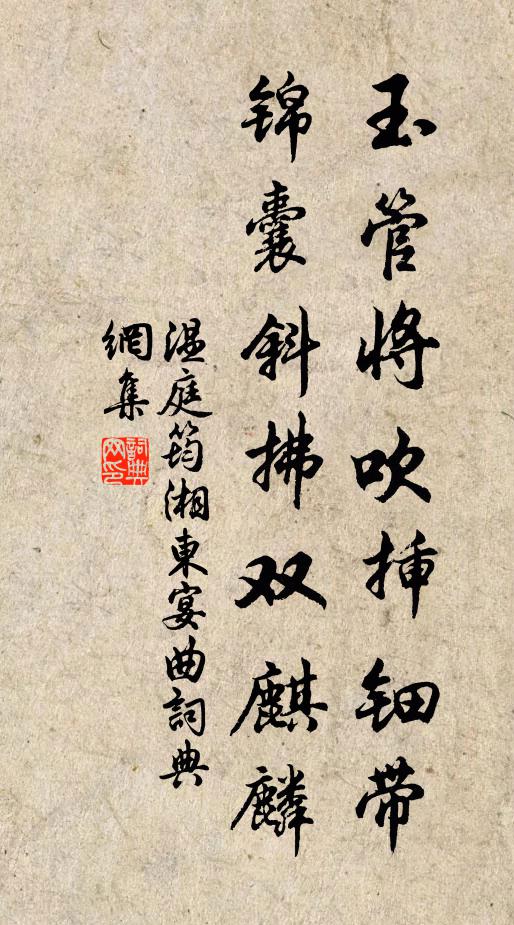 玉管将吹插钿带
锦囊斜拂双麒麟
温庭筠湘東宴曲詞典
網集
詞典网印